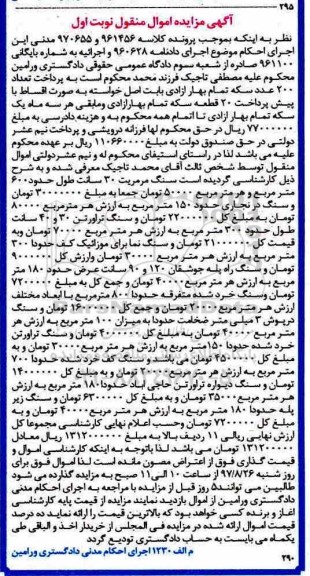 ۲۹۵
آگهی مزایده اموال منقول نوبت اول
نظر به اینکه بموجب پرونده کلاسه ۹۶۱۴۵۶ و ۹۷۰۶۵۵ مدنی این
اجرای احکام موضوع اجرای دادنامه ۹۶۰۶۲۸ و اجرائیه به شماره بایگانی
۹۶۱۱۰۰ صادره از شعبه سوم دادگاه عمومی حقوقی دادگستری ورامین
محکوم علیه مصطفی تاجیک فرزند محمد محکوم است به پرداخت تعداد
۲۰۰ عدد سکه تمام بهار آزادی بابت اصل خواسته به صورت اقساط با
پیش پرداخت ۲۰ قطعه سکه تمام بهارآزادی ومابقی هر سه ماه یک
سکه تمام بهار آزادی تا اتمام همه محکوم به و هزینه دادرسی به مبلغ
۷۷۰۰۰۰۰۰ ریال در حق محکوم لها فرزانه درویشی و پرداخت نیم عشر
دولتی در حق صندوق دولت به مبلغ ۱۱۰۶۶۰۰۰۰ ریال بر عهده محکوم
علیه می باشد لذا در راستای استیفای محکوم له و نیم عشردولتی اموال
منقول توسط شخص ثالث آقای محمد تاجیک معرفی شده و به شرح
ذیل کارشناسی گردیده است سنگ مرمریت ۳۰ سانت طول حدود ۶۰۰
متر مربع و هر متر مربع ۵۰۰۰۰ تومان جمعا به مبلغ ۳۰۰۰۰۰۰۰ تومان
و سنگ در نجاری حدود ۱۵۰ متر مربع به ارزش هر مترمربع ۸۰۰۰۰
تومان به مبلغ کل ۲۲۰۰۰۰۰۰ تومان و سنگ تراورتن ۳۰ و ۴۰ سانت
طول حدود ۳۰۰ متر مربع به ارزش هر متر مربع ۷۰۰۰۰ تومان وبه
قیمت کل ۲۱۰۰۰۰۰۰ تومان و سنگ نما برای موزائیک کف حدودا ۳۰۰
متر مربع به ارزش هر متر مربع ۳۰۰۰۰ تومان وارزش کل ۹۰۰۰۰۰۰
تومان و سنگ راه پله جوشقان ۱۲۰ و ۹۰ سانت عرض حدود ۱۸۰ متر
مربع به ارزش هر متر مربع ۴۰۰۰۰ تومان و جمع کل به مبلغ ۷۲۰۰۰۰۰
تومان وسنگ خرد شده متفرقه حدودا ۸۰۰ مترمربع با ابعاد مختلف
ارزش هر متر مربع ۲۰۰۰۰ تومان و جمع کل ۱۶۰۰۰۰۰۰ تومان و سنگ
درپوش ۳ میلی متر ضخامت حدودا به میزان ۱۰۰ متر مربع به ارزش هر
متر مربع ۴۰۰۰۰ تومان به مبلغ کل ۴۰۰۰۰۰۰ تومان و سنگ تراورتن
خرد شده حدودا ۱۵۰ متر مربع به ارزش هر متر مربع ۳۰۰۰۰ تومان و به
مبلغ کل ۴۵۰۰۰۰۰ تومان می باشد و سنگ کف خرد شده حدودا ۷۰۰
متر مربع به ارزش هر متر مربع ۲۰۰۰۰ تومان و به مبلغ کل ۱۴۰۰۰۰۰۰
تومان و سنگ دیواره تراورتن حاجی آباد حدودا ۱۸۰ متر مربع به ارزش
هر متر مربع ۳۵۰۰۰ تومان و به مبلغ کل ۶۳۰۰۰۰۰ تومان و سنگ زیر
پله حدودا ۱۸۰ متر مربع به ارزش هر متر مربع ۴۰۰۰۰ تومان و به
مبلغ کل ۷۲۰۰۰۰۰ تومان وحسب اعلام نهایی کارشناسی مجموعا کل
ارزش نهایی ریالی ۱۱ ردیف بالا به مبلغ ۱۳۱۲۰۰۰۰۰۰ ریال معادل
۱۳۱۲۰۰۰۰۰ تومان می باشد لذا باتوجه به اینکه کارشناسی اموال و
قیمت گذاری فوق از اعتراض مصون مانده است لذا اموال فوق برای
روز شنبه ۹۷/۸/۲۶ از ساعت ۱۰ الی ۱۱ صبح به مزایده گذارده می شود
طالبین می توانند ۵ روز قبل از مزایده با مراجعه به اجرای احکام مدنی
دادگستری ورامین از اموال بازدید نمایند مزایده از قیمت پایه کارشناسی
آغاز و برنده کسی خواهد بود که بالاترین قیمت را ارائه نماید ده درصد
قیمت اموال ارائه شده در مزایده فی المجلس از خریدار اخذ و الباقی طی
یکماه می بایست به حساب دادگستری تودیع گردد
م الف ۱۲۳۰ اجرای احکام مدنی دادگستری ورامین
۲۹۰